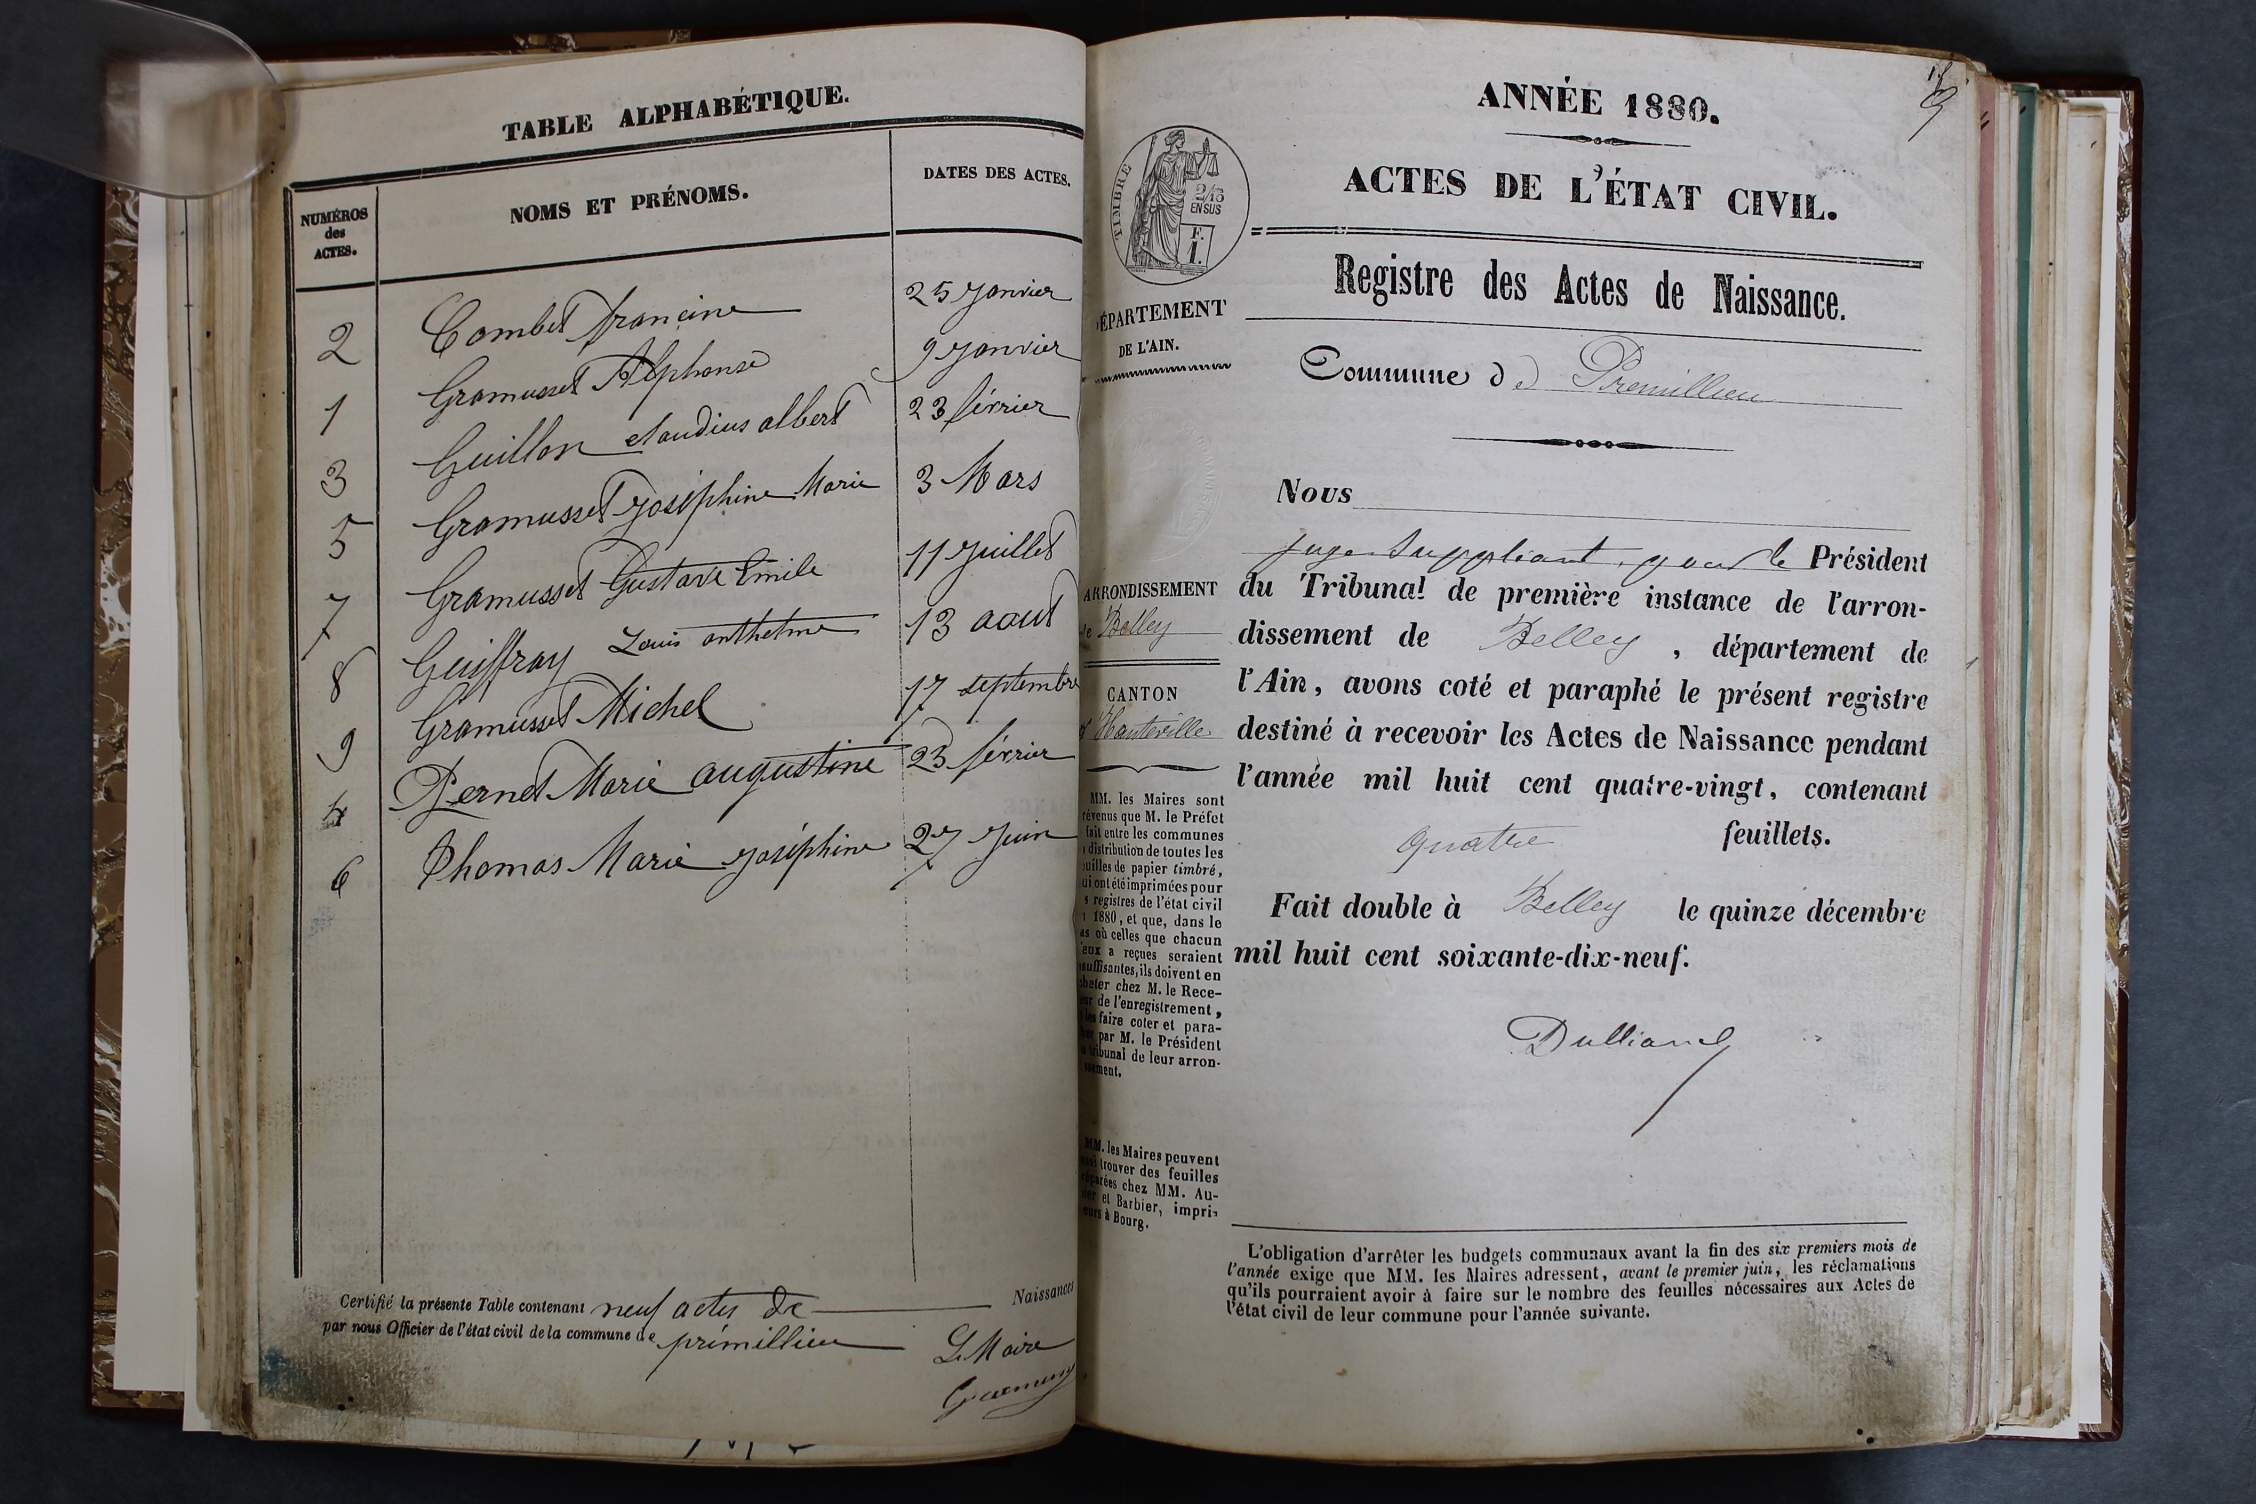 TABLE ALPHABÉTIQUE.
NUMÉROS
des
ACTES.
NOMS ET PRÉNOMS.
DATES DES ACTES.
2 Combet francine 25 Janvier
1 Gramusset Alphonse 9 Janvier
3 Guillon claudius albert 23 février
5 Gramusset Joséphine Marie 3 Mars
7 Gramusset Gustave Emile 11 Juillet
8 Guiffray Louis anthelme 13 aout
9 Gramusset Michel 17 septembre
4 Pernet Marie augustine 23 février
6 Thomas Marie Joséphine 27 Juin
Certifié la présente Table contenant neuf actes de Naissances
par nous Officier de l'état civil de la commune de prémillieu
Le Maire
ANNÉE 1880.
ACTES DE L'ÉTAT CIVIL.
TIMBRE
2/10
EN SUS
F.
1.
Registre des Actes de Naissance.
DÉPARTEMENT
DE L'AIN.
Commune de Prémillieu
Nous
juge suppléant, pour le Président
du Tribunal de première instance de l'arron-
dissement de Belley, département de
l'Ain, avons coté et paraphé le présent registre
destiné à recevoir les Actes de Naissance pendant
l'année mil huit cent quatre-vingt, contenant
quatre feuillets.
Fait double à Belley le quinze décembre
mil huit cent soixante-dix-neuf.
ARRONDISSEMENT
de Belley
CANTON
d'Hauteville
MM. les Maires sont
prévenus que M. le Préfet
fait entre les communes
la distribution de toutes les
feuilles de papier timbré,
qui ont été imprimées pour
les registres de l'état civil
de 1880, et que, dans le
cas où celles que chacun
d'eux a reçues seraient
insuffisantes, ils doivent en
acheter chez M. le Rece-
veur de l'enregistrement,
et les faire coter et para-
pher par M. le Président
du tribunal de leur arron-
dissement.
MM. les Maires peuvent
aussi trouver des feuilles
préparées chez MM. Au-
thier et Barbier, impri-
meurs à Bourg.
L'obligation d'arrêter les budgets communaux avant la fin des six premiers mois de
l'année exige que MM. les Maires adressent, avant le premier juin, les réclamations
qu'ils pourraient avoir à faire sur le nombre des feuilles nécessaires aux Actes de
l'état civil de leur commune pour l'année suivante.